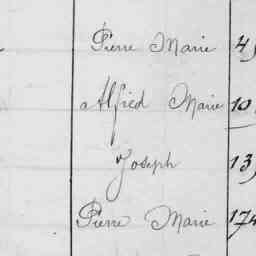 Pierre Marie 4
Alfred Marie 10
Joseph 13
Pierre Marie 174